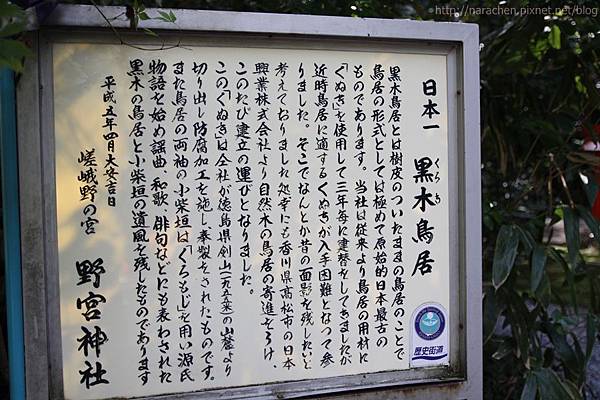 http://narachen.pixnet.net/blog
日本一 黒木鳥居
くろき
黒木鳥居とは樹皮のついたままの鳥居のことで
鳥居の形式としては極めて原始的日本最古の
ものであります。当社は従来より鳥居の用材に
「くぬぎ」を使用して三年毎に建替をしてきましたが
近時鳥居に適するくぬぎが入手困難となって参
りました。そこでなんとか昔の面影を残したいと
考えておりました処幸にも香川県高松市の日本
興業株式会社より自然木の鳥居の寄進をうけ、
このたび建立の運びとなりました。
この「くぬぎ」は全社が徳島県剣山(一九五五米)の山麓より
切り出し防腐加工を施し奉製をされたものです。
また鳥居の両袖の小柴垣は「くろもじ」を用い源氏
物語を始め謡曲、和歌、俳句などにも表わされた
黒木の鳥居と小柴垣の遺風を残したものであります
平成五年四月大安吉日
嵯峨野の宮 野宮神社
歴史街道